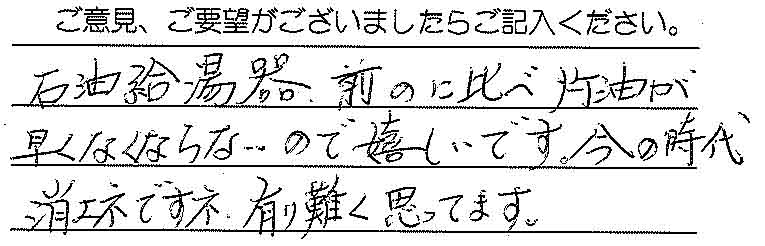 ご意見、ご要望がございましたらご記入ください。
石油給湯器、前のに比べ灯油が
早くなくならないので嬉しいです。今の時代
消エネですネ、有り難く思ってます。